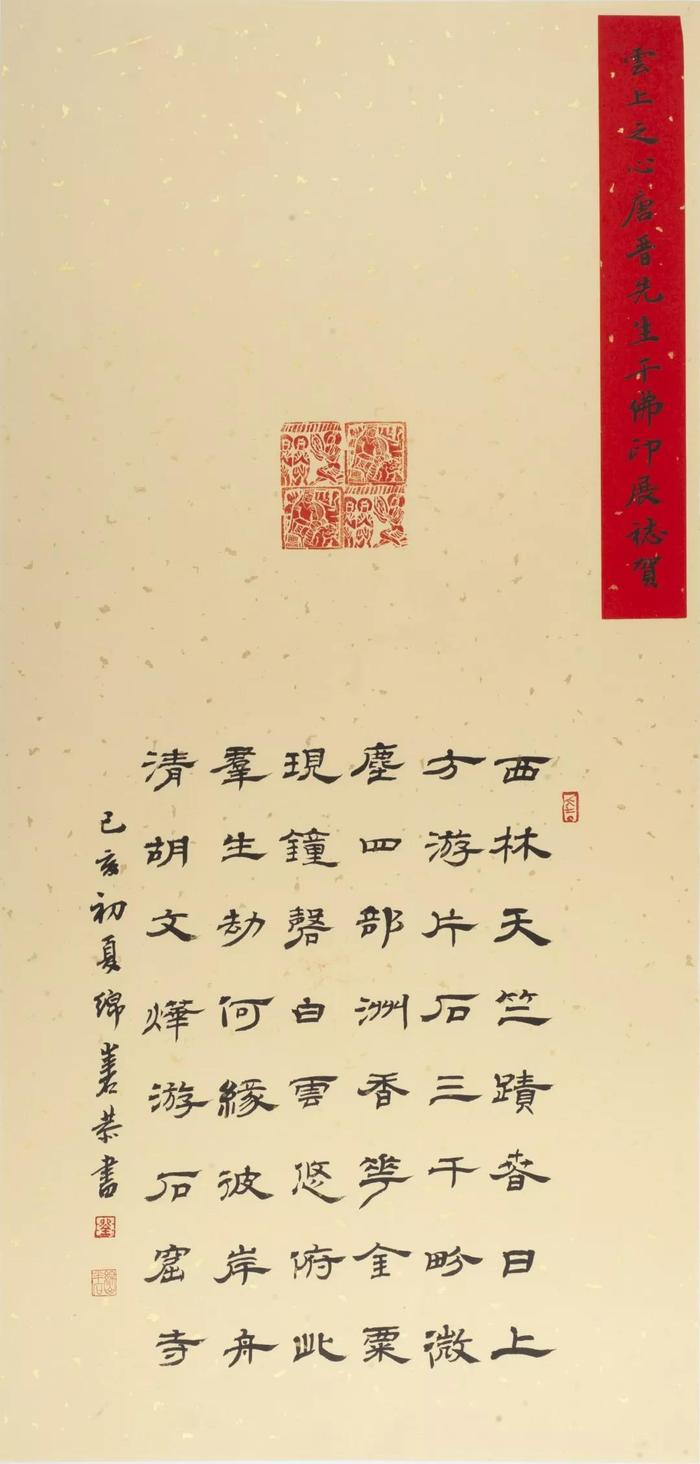 雲上之心唐晋先生千佛印展誌賀
西林天竺蹟春日上
方游片石三千畍微
塵四部洲香花金粟
現鐘磬白雲悠俯此
羣生劫何緣彼岸舟
清胡文燁游石窟寺
己亥初夏綿善恭書